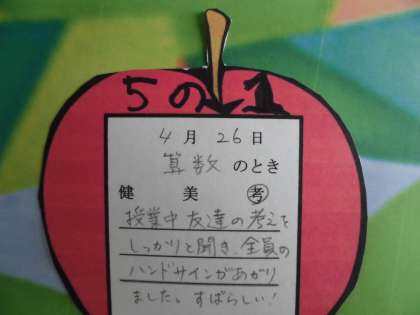 5の1
4月26日
算数のとき
健 美 考
授業中友達の考えを
しっかりと聞き、全員の
ハンドサインがあがり
ました。すばらしい!